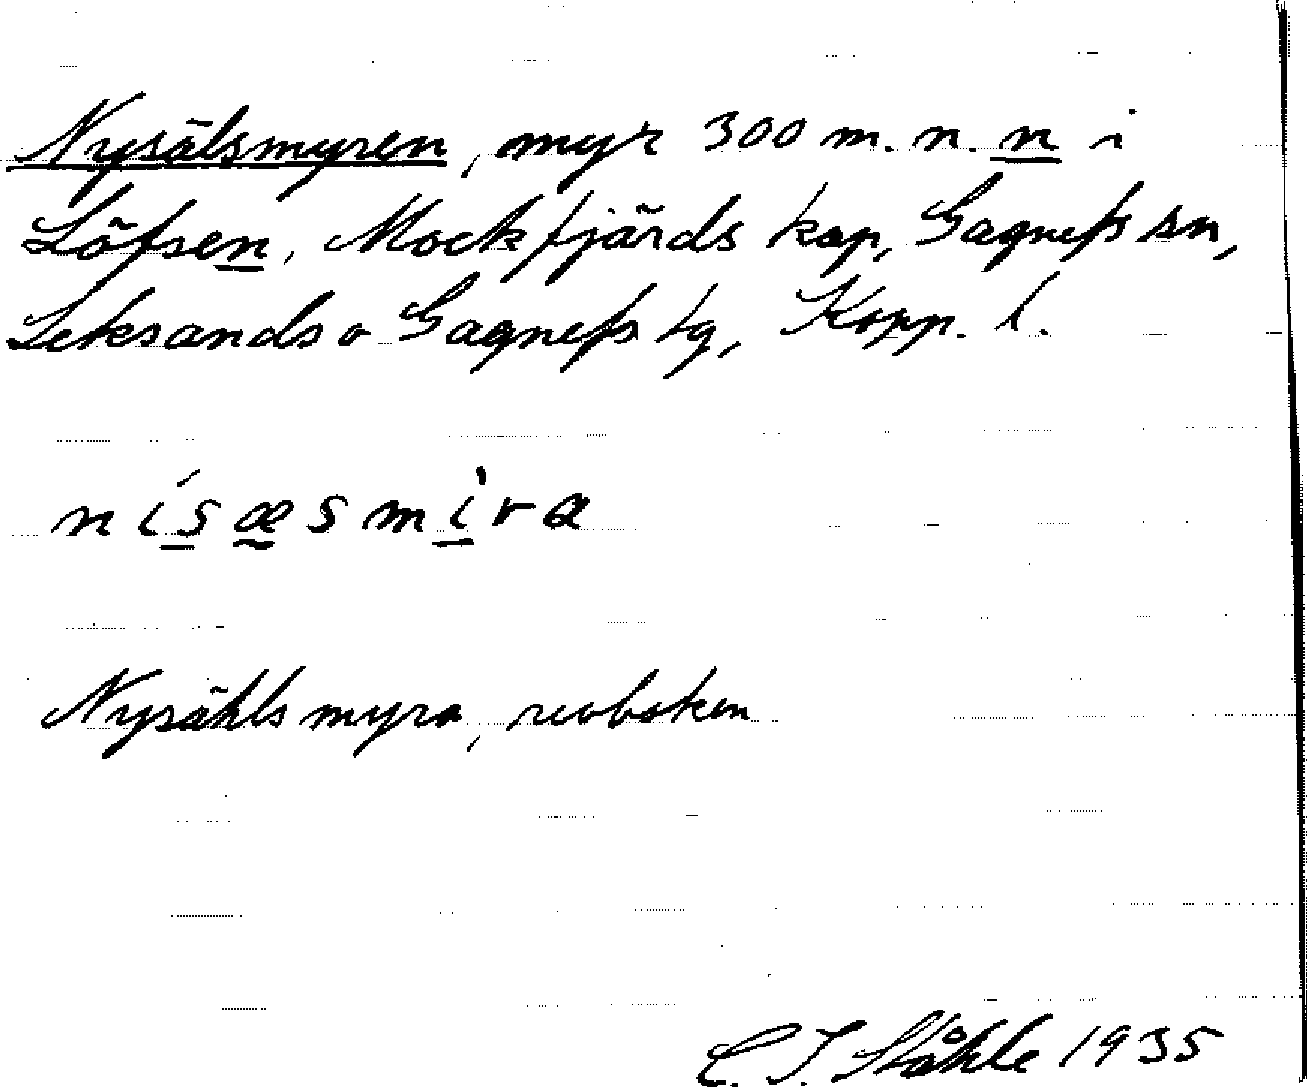 Nysälsmyren, myr 300 m. n. n i
Löfsen, Mockfjärds kap, Gagnefs sn,
Leksands o Gagnefs tg, Kopp. l.
nísæsmìra
Nysählsmyra, revboken
C. I. Ståhle 1935